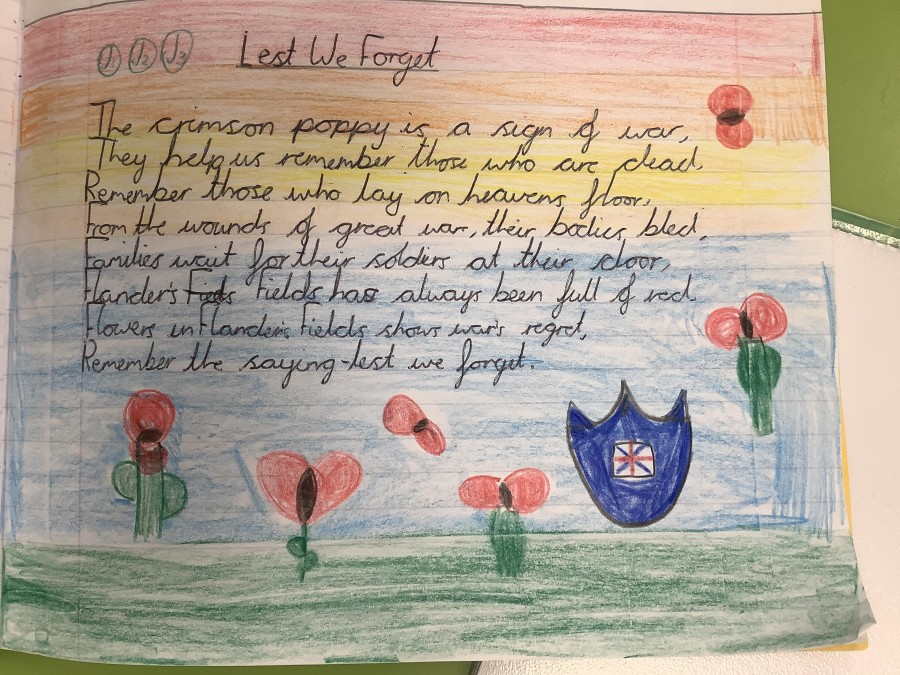 J1 J2 J3 Lest We Forget
The crimson poppy is a sign of war,
They help us remember those who are dead,
Remember those who lay on heavens floor,
From the wounds of great war, their bodies bled,
Families wait for their soldiers at their door,
Flander's Fields has always been full of red.
Flowers in Flander's Fields shows war's regret,
Remember the saying-lest we forget.